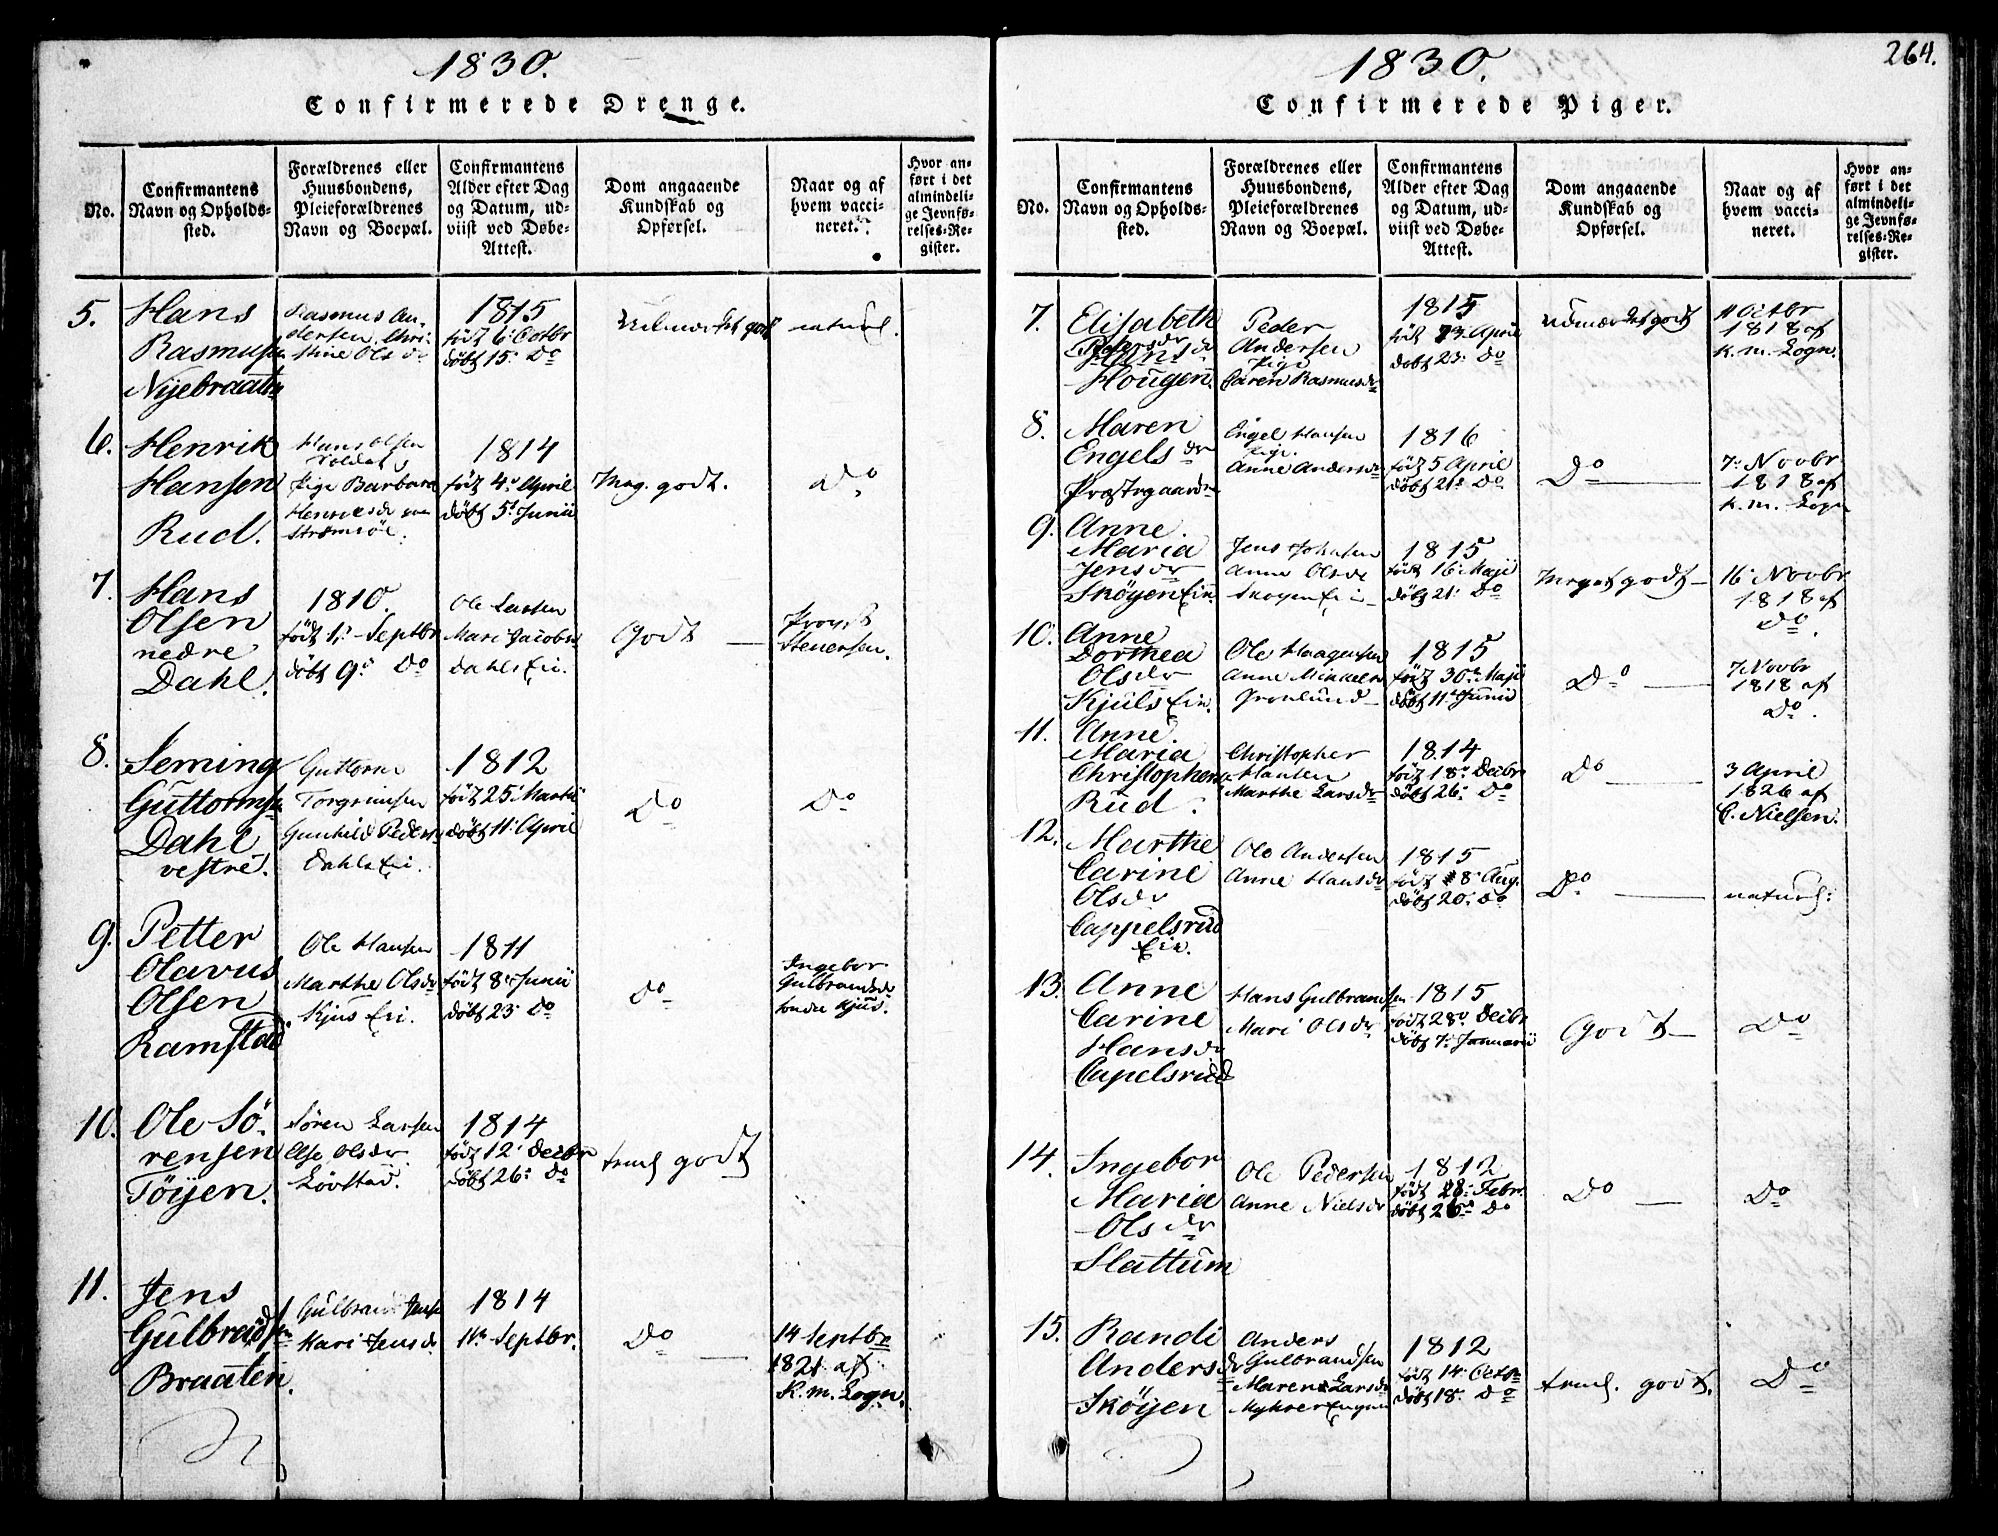 1830.
Confirmerede Drenge.
No.
Confirmantens Navn og Opholds-sted.
Forældrenes eller Huusbondens, Pleieforældrenes Navn og Boepæl.
Confirmantens Alder efter Dag og Datum, ud-viist ved Døbe-Attest.
Dom angaaende Kundskab og Opførsel.
Naar og af hvem vacci-neret.
Hvor an-ført i det almindeli-ge Jevnfø-relses-Re-gister.
5.
Hans
Rasmusen
Nÿebraaten
Rasmus An-
dersen, Chri-
stine Ols dr
1815
født 6 Octbr
døbt 15: Do
Udmærket godt
naturl.
6.
Henrik
Hansen
Rud.
Hans Olsen
Soldat
Pige Barbara
Henriksdr
Strømsöe.
1814
født 4: April
døbt 5 Junii
Meg. godt.
Do
7.
Hans
Olsen
nedre
Dahl.
1810.
født 1: Septbr
døbt 9: Do
Ole Larsen
Mari Jacobs
Dahls Ei.
Godt
Provst
Stenersen.
8.
Seming
Guttormsen
Dahl
vestre.
Guttorm
Torgrimsen
Gunhild Peders
Dahls Ei.
1812
født 25 Martii
døbt 11: April
Do
Do
9.
Petter
Olavus
Olsen
Ramstad
Ole Hansen
Marthe Olsdr
Kjus Ei.
1811
født 8: Junii
døbt 23: Do
Do
Ingebor
Gulbrandsdr
Kjus.
10.
Ole Sö-
rensen
Töÿen.
Sören Larsen
Else Olsdr
Lövstad.
1814
født 12: Decbr
døbt 26: Do
teml godt
11.
Jens
Gulbrandsen
Braaten.
Gulbrand Jens
Kari Jensdr
1814
11te Septbr.
Do
14 Septbr
1821 af
K. m. Logn.
264.
1830.
Confirmerede Piger.
No.
Confirmantens Navn og Opholds-sted.
Forældrenes eller Huusbondens, Pleieforældrenes Navn og Boepæl.
Confirmantens Alder efter Dag og Datum, ud-viist ved Døbe-Attest.
Dom angaaende Kundskab og Opførsel.
Naar og af hvem vacci-neret.
Hvor an-ført i det almindeli-ge Jevnfø-relses-Re-gister.
7.
Elisabeth
Pedersdr
Hougen.
Peder
Andersen
Pige
Caren Rasmusdr
1815
født 23 April
døbt 23: Do
Udmærket godt
11 Octbr
1818 af
K. m. Logn.
8.
Maren
Engels dr
Præstegaarden
Engel Hansen
Pige.
Anne Andersdr
1816
født 5 April
døbt 21: Do
Do
7: Novbr
1818 af
K. m. Logn
9.
Anne
Maria
Jensdr
Sköyen Ein.
Jens Johnsen
Anne Olsdr
Skogen Ein
1815
født 16: Maji
døbt 21: Do
Meget godt
16: Novbr
1818 af
Do.
10.
Anne
Dorthea
Olsdr
Kjuls Ein.
Ole Haagensen
Anne Mikkels
Gronlund
1815
født 30: Maji
døbt 11: Junii
Do
7 Novbr
1818 af
Do.
11.
Anne
Maria
Christophers
Rud.
Christopher
Hansen
Marthe Larsdr
1814
født 18: Decbr
døbt 26: Do
Do
3 April
1826 af
C. Nielsen.
12.
Marthe
Carine
Olsdr
Cappelsrud
Ein.
Ole Andersen
Anne Hansdr
1815
født 8: Aug.
døbt 20: Do
Do
naturl:
13.
Anne
Carine
Hansdr
Capelsrud
Hans Gulbrandsen
Mari Olsdr
1815
født 28: Decbr
døbt 7: Januarii
Godt
Do
14.
Ingebor
Maria
Ols dr
Slattum
Ole Pedersen
Anne Nielsdr
1812
født 28: Febr.
døbt 26: Do
Do
Do
15.
Randi
Anders dr
Sköÿen
Anders
Gulbrandsen
Maren Larsdr
1812
født 14: Octbr
døbt 18: Do
teml. godt.
Do